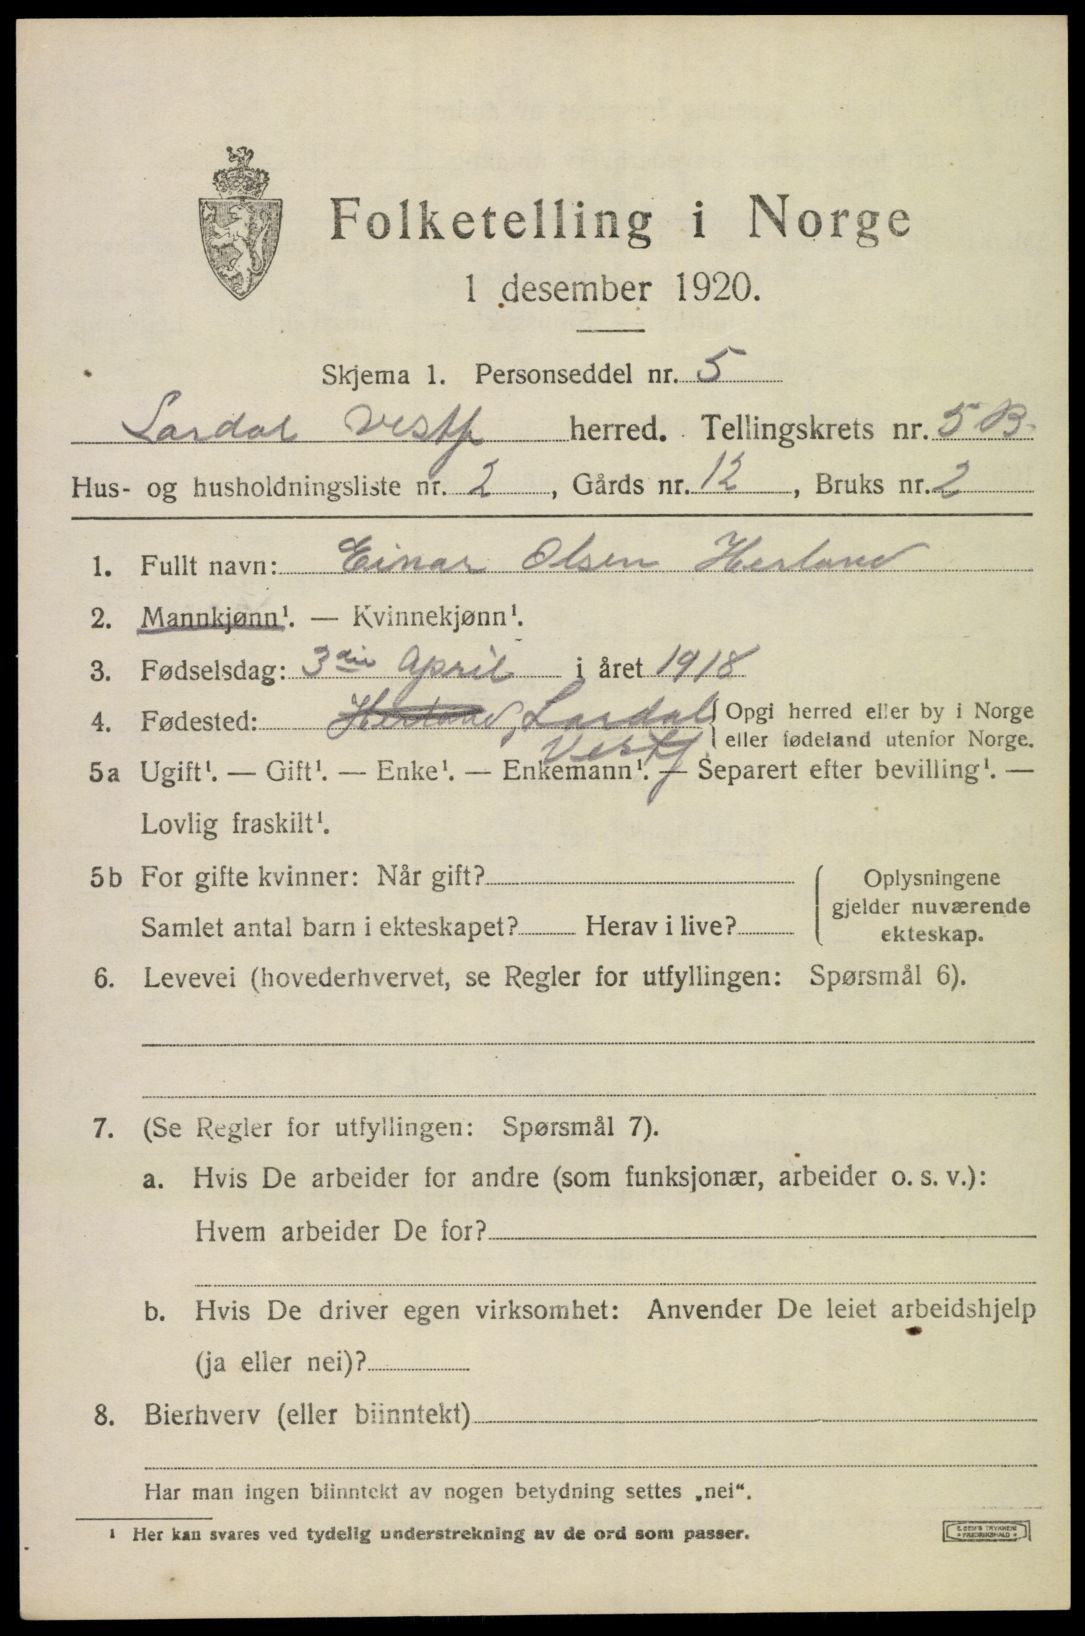 Folketelling i Norge
1 desember 1920.
Skjema 1. Personseddel nr. 5
Lardal Vestf herred. Tellingskrets nr. 5 B.
Hus- og husholdningsliste nr. 2, Gårds nr. 12, Bruks nr. 2
1. Fullt navn: Einar Olsen Herland
2. Mannkjønn¹. — Kvinnekjønn¹.
3. Fødselsdag: 3die April i året 1918
4. Fødested: Herland, Lardal Opgi herred eller by i Norge
Vestf. eller fødeland utenfor Norge.
5a Ugift¹. — Gift¹. — Enke¹. — Enkemann¹. — Separert efter bevilling¹. —
Lovlig fraskilt¹.
5b For gifte kvinner: Når gift? Oplysningene
gjelder nuværende
Samlet antal barn i ekteskapet? Herav i live? ekteskap.
6. Levevei (hovederhvervet, se Regler for utfyllingen: Spørsmål 6).
7. (Se Regler for utfyllingen: Spørsmål 7).
a. Hvis De arbeider for andre (som funksjonær, arbeider o. s. v.):
Hvem arbeider De for?
b. Hvis De driver egen virksomhet: Anvender De leiet arbeidshjelp
(ja eller nei)?
8. Bierhverv (eller biinntekt)
Har man ingen biinntekt av nogen betydning settes „nei“.
¹ Her kan svares ved tydelig understrekning av de ord som passer.
TRYKKERI
FREDRIKSHALD